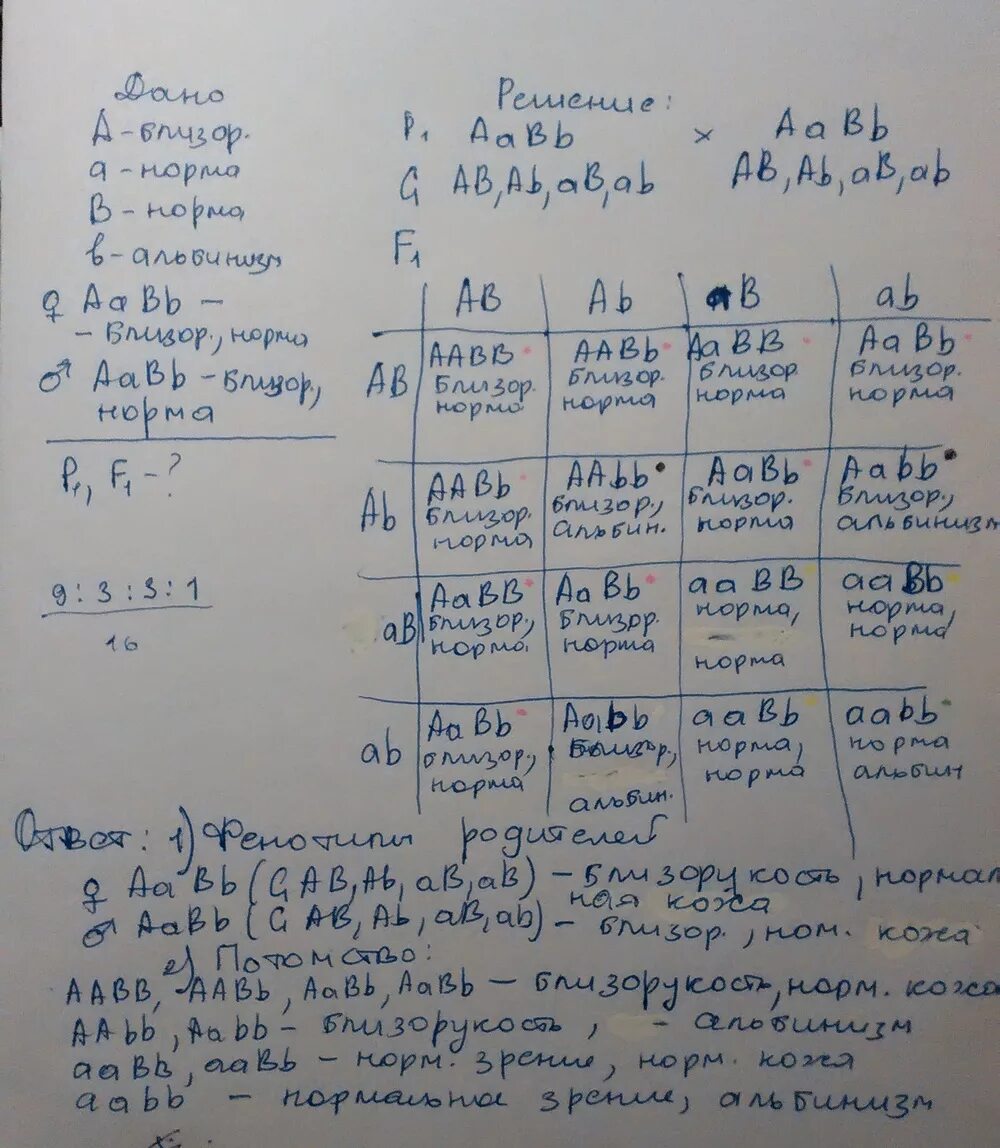 Дано
А - близор.
а - норма
В - норма
в - альбинизм
♀ АаВb -
- близор., норма
♂ АаВb - близор.,
норма
P₁, F₁ - ?
9 : 3 : 3 : 1
16
Решение:
P₁ АаВb × АаВb
G АВ, Аb, аВ, аb АВ, Аb, аВ, аb
F₁
АВ Аb аВ аb
АВ ААВВ ААВb АаВВ АаВb
близор. близор. близор близор.
норма норма норма норма
Аb ААВb ААbb АаВb Ааbb
близор. близор., близор. близор.,
норма альбин. норма альбинизм
аВ АаВВ АаВb ааВВ ааВb
близор., близор. норма, норма,
норма. норма норма норма
аb АаВb Ааbb ааВb ааbb
близор., близор., норма, норма
норма альбин. норма альбин
Ответ: 1) Фенотипы родителей
♀ АаВb (G АВ, Аb, аВ, аВ) - близорукость, нормаль
ная кожа
♂ АаВb (G АВ, Аb, аВ, аb) - близор., ном. кожа
2) Потомство:
ААВВ, ААВb, АаВb, АаВb - близорукость, норм. кожа
ААbb, Ааbb - близорукость, - альбинизм
ааВВ, ааВb - норм. зрение, норм. кожа
ааbb - нормальное зрение, альбинизм